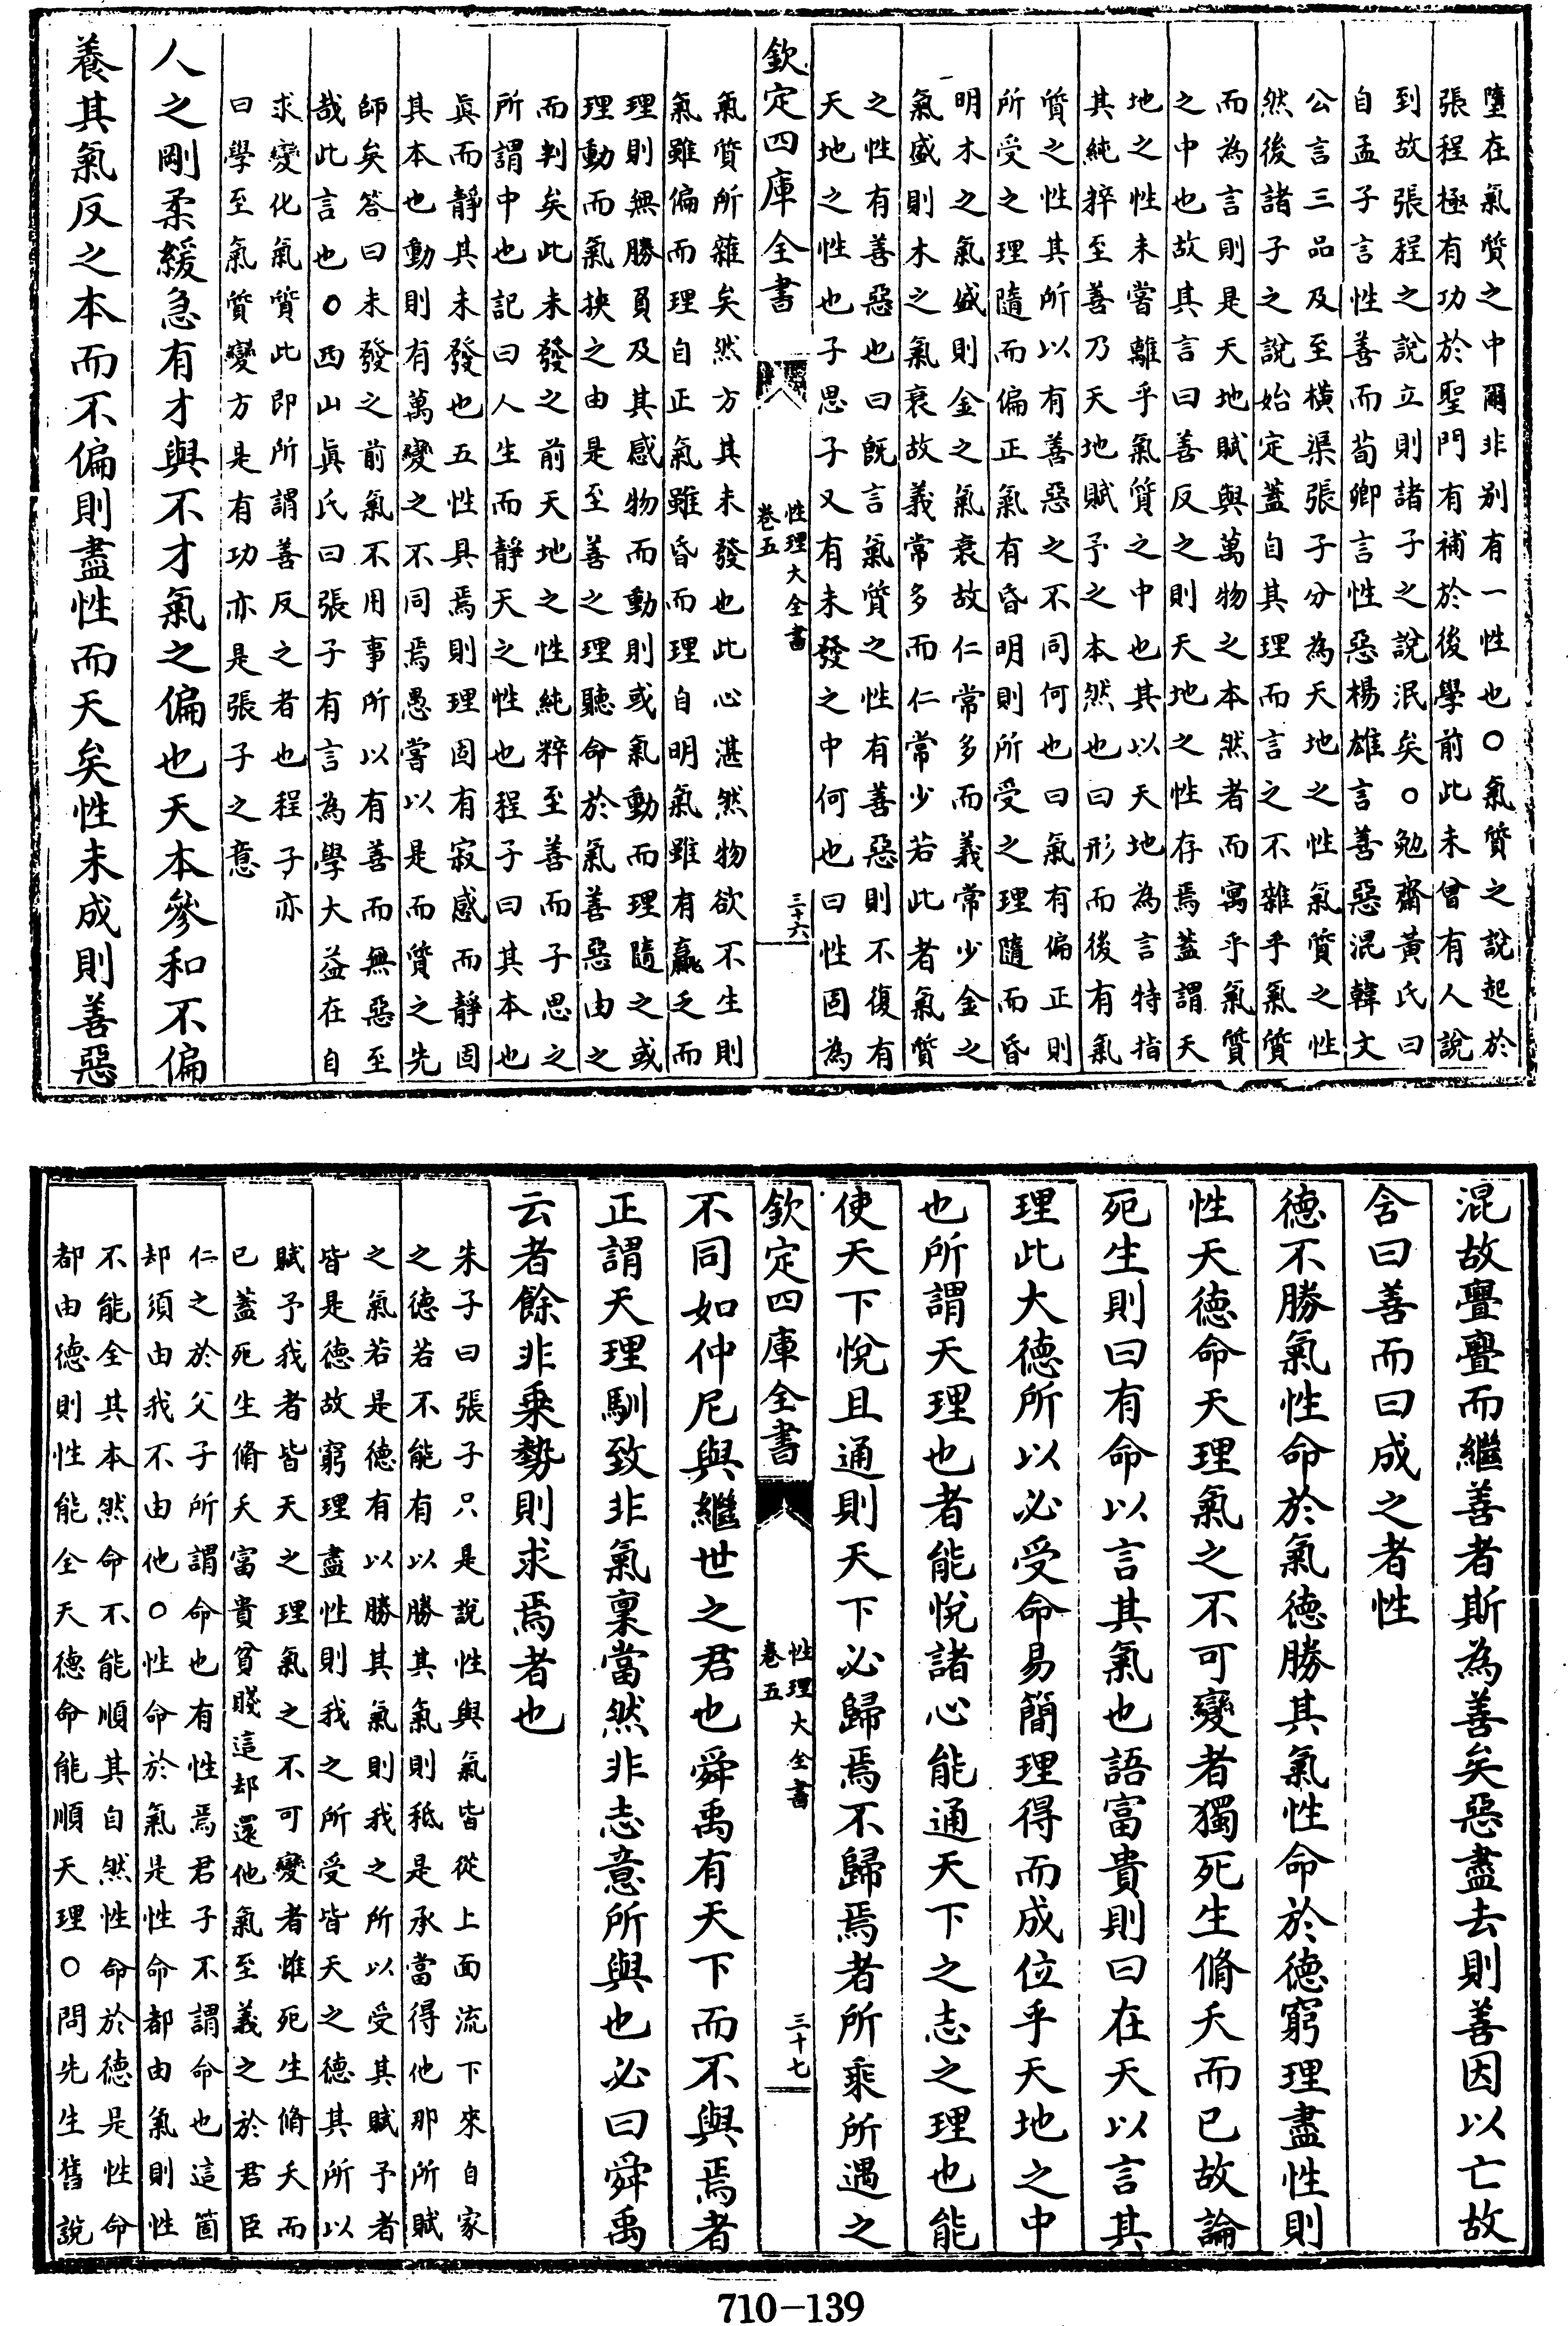 墮在氣質之中爾非别有一性也○氣質之說起於
張程極有功於聖門有補於後學前此未曾有人說
到故張程之說立則諸子之說泯矣○勉齋黄氏曰
自孟子言性善而荀卿言性惡楊雄言善惡混韓文
公言三品及至橫渠張子分為天地之性氣質之性
然後諸子之說始定蓋自其理而言之不雜乎氣質
而為言則是天地賦與萬物之本然者而寓乎氣質
之中也故其言曰善反之則天地之性存焉蓋謂天
地之性未嘗離乎氣質之中也其以天地為言特指
其純粹至善乃天地賦予之本然也曰形而後有氣
質之性其所以有善惡之不同何也曰氣有偏正則
所受之理隨而偏正氣有昏明則所受之理隨而昏
明木之氣盛則金之氣衰故仁常多而義常少金之
氣盛則木之氣衰故義常多而仁常少若此者氣質
之性有善惡也曰既言氣質之性有善惡則不復有
天地之性也子思子又有未發之中何也曰性固為
欽定四庫全書
性理大全書
卷五
三十六
氣質所雜矣然方其未發也此心湛然物欲不生則
氣雖偏而理自正氣雖昏而理自明氣雖有贏乏而
理則無勝負及其感物而動則或氣動而理隨之或
理動而氣挾之由是至善之理聽命於氣善惡由之
而判矣此未發之前天地之性純粹至善而子思之
所謂中也記曰人生而靜天之性也程子曰其本也
眞而靜其未發也五性具焉則理固有寂感而靜固
其本也動則有萬變之不同焉愚嘗以是而質之先
師矣答曰未發之前氣不用事所以有善而無惡至
哉此言也○西山眞氏曰張子有言為學大益在自
求變化氣質此即所謂善反之者也程子亦
曰學至氣質變方是有功亦是張子之意
人之剛柔緩急有才與不才氣之偏也天本參和不偏
養其氣反之本而不偏則盡性而天矣性未成則善惡
混故亹亹而繼善者斯為善矣惡盡去則善因以亡故
舍曰善而曰成之者性
德不勝氣性命於氣德勝其氣性命於德窮理盡性則
性天德命天理氣之不可變者獨死生脩夭而已故論
死生則曰有命以言其氣也語富貴則曰在天以言其
理此大德所以必受命易簡理得而成位乎天地之中
也所謂天理也者能悅諸心能通天下之志之理也能
使天下悅且通則天下必歸焉不歸焉者所乘所遇之
欽定四庫全書
性理大全書
卷五
三十七
不同如仲尼與繼世之君也舜禹有天下而不與焉者
正謂天理馴致非氣稟當然非志意所與也必曰舜禹
云者餘非乘勢則求焉者也
朱子曰張子只是說性與氣皆從上面流下來自家
之德若不能有以勝其氣則秪是承當得他那所賦
之氣若是德有以勝其氣則我之所以受其賦予者
皆是德故窮理盡性則我之所受皆天之德其所以
賦予我者皆天之理氣之不可變者惟死生脩夭而
已蓋死生脩夭富貴貧賤這却還他氣至義之於君臣
仁之於父子所謂命也有性焉君子不謂命也這箇
却須由我不由他○性命於氣是性命都由氣則性
不能全其本然命不能順其自然性命於德是性命
都由德則性能全天德命能順天理○問先生舊說
710-139